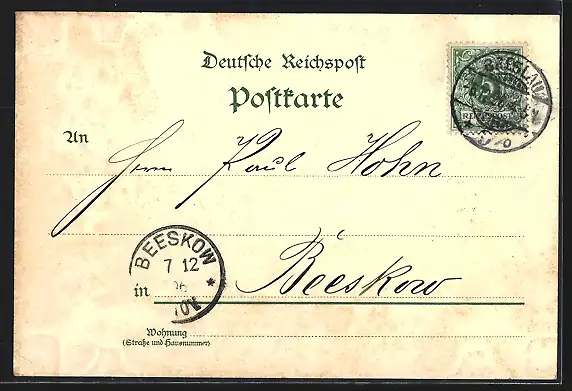 Deutsche Reichspost
Postkarte
BRESLAU
REICHSPOST
An
Herrn Paul Hohn
BEESKOW
7 12
96
in Beeskow
Wohnung
(Straße und Hausnummer)